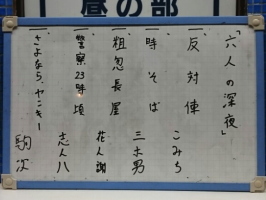 昼の部
「六人の深夜」
一、反対俥 こみち
一、時そば 三木男
一、粗忽長屋 花ん謝
一、警察23時頃 志ん八
一、さよならヤンキー 駒次